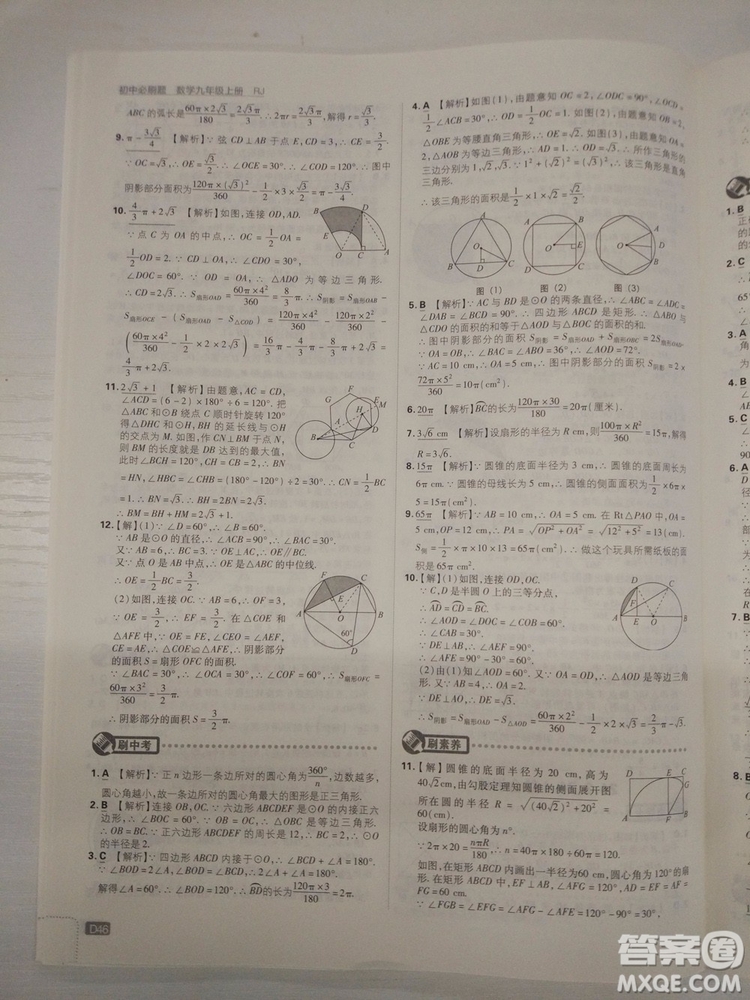 初中必刷题 数学九年级上册 RJ
ABC 的弧长是60π×2√3/180=2√3/3π,∴2πr=2√3/3π,解得r=√3/3.
9. π-3√3/4 【解析】∵弦 CD⊥AB 于点 E,∴CE=√3.
∵OC=√3,∴OE=√3/2,∴∠OCE=30°,∴∠COD=120°.∴图中
阴影部分面积为120π×(√3)²/360-1/2×3×√3/2=π-3√3/4.
10. 4/3π+2√3 【解析】如图,连接 OD,AD.
∵点 C 为 OA 的中点,∴OC=1/2OA=
1/2OD=2.∵CD⊥OA,∴∠CDO=30°,
∠DOC=60°,∴△ADO 为等边三角形.
∴CD=2√3.∴S扇形OAD=60π×4²/360=8/3π.∴S阴影=S扇形OAB-
S扇形OCE-(S扇形OAD-S△COD)=120π×4²/360-120π×2²/360-
(60π×4²/360-1/2×2×2√3)=16/3π-4/3π-8/3π+2√3=
4/3π+2√3.
11. 2√3+1 【解析】由题意,AC=CD,
∠ACD=(6-2)×180°÷6=120°.把
△ABC和⊙B 绕点 C 顺时针旋转 120°
得△DHC 和⊙H,BH 的延长线与⊙H
的交点为 M.如图,作 CN⊥BM 于点 N,
则BM的长度就是 DB 达到的最大值,
此时∠BCH=120°,CH=BC=2,∴BN
=HN,∠HBC=∠BHC=(180°-120°)÷2=30°,∴CN=1/2BC
=1,∴BN=√3,∴BH=2BN=2√3.
∴BM=BH+HM=2√3+1.
12. 【解】(1)∵∠D=60°,∴∠B=60°.
∵AB 是⊙O 的直径,∴∠ACB=90°.
又∵AB=6,∴BC=3.∵OE⊥AC,∴OE∥BC.
又∵点 O 是 AB 中点,∴OE 是△ABC 的中位线.
∴OE=1/2BC=3/2.
(2)如图,连接 OC.∵AB=6,∴OF=3.
∵OE=3/2,∴EF=3/2.在△COE 和
△AFE 中,∵OE=EF,∠CEO=∠AEF,
CE=AE,∴△COE≌△AFE.∴阴影部分
的面积S=扇形 OFC 的面积.
∵∠BAC=30°,∴∠OCA=30°,∴∠COF=60°,∴S扇形OFC=
60π×3²/360=3/2π.
∴阴影部分的面积为3/2π.
刷中考
1. A 【解析】正n边形一条边所对的圆心角为360°/n,边数越多,
圆心角越小,故一条边所对的圆心角最大的图形是正三角形.
2. B 【解析】连接 OB,OC.∵六边形 ABCDEF 是⊙O 的内接正六
边形,∴∠BOC=60°.∵OB=OC,∴△OBC 为等边三角形,
∴OB=BC.∵正六边形 ABCDEF 的周长是 12,∴BC=2,∴⊙O
的半径是 2.
3. C 【解析】∵四边形 ABCD 内接于⊙O,∴∠BCD+∠A=180°.
∵∠BOD=2∠A,∠BOD=∠BCD,∴2∠A+∠A=180°.
解得∠A=60°,∴∠BOD=120°,∴BD的长=120π×3/180=2π.
D46
4. A 【解析】如图(1),由题意知 OC=2,∠ODC=90°,∠OCD=
1/2∠ACB=30°,∴OD=1/2OC=1.如图(2),由题意知
△OBE 为等腰直角三角形,∴OE=√2.如图(3),由题意知
△OAB 为等边三角形,∴OD=√3.∴所作三角形的
三边分别为 1,√2,√3.∵1²+(√2)²=(√3)²,∴该三角形是直
角三角形.
∴该三角形的面积=1/2×1×√2=√2/2.
图 (1) 图 (2) 图 (3)
5. B 【解析】∵AC 与 BD 是⊙O 的两条直径,∴∠ABC=∠ADC=
∠DAB=90°.∴四边形 ABCD 是矩形.∴△ABO 与
△CDO 的面积的和等于△AOD 与△BOC 的面积的和.
∴图中阴影部分的面积 S阴影=S扇形OAD+S扇形OBC=2S扇形OAD.
∵OA=OB,∴∠BAC=∠ABO=36°,∴∠AOD=72°.
∵AC=10 cm,∴OA=5 cm,∴图中阴影部分的面积=2×
72π×5²/360=10π(cm²).
6. 20π 【解析】BC的长为120π×30/180=20π(厘米).
7. 3√6 cm 【解析】设扇形的半径为 R cm,则100π×R²/360=15π,解得
R=3√6.
8. 15π 【解析】∵圆锥的底面半径为 3 cm,∴圆锥的底面周长为
6π cm.∵圆锥的母线长为 5 cm,∴圆锥的侧面面积=1/2×6π×
5=15π(cm²).
9. 65π 【解析】∵AB=10 cm,∴OA=5 cm.在 Rt△PAO 中,OA=
5 cm,OP=12 cm,∴PA=√(OP²+OA²)=√(12²+5²)=13(cm).
S侧=1/2×π×10×13=65π(cm²).∴做这个玩具所需纸板的面
积是 65π cm².
10. 【解】(1)如图,连接 OD,OC.
∵C,D 是半圆 O 上的三等分点,
∴AD=CD=BC.
∴∠AOD=∠DOC=∠COB=60°.
∴∠CAB=30°.∵DE⊥AB,∴∠AEF=90°.
∴∠AFE=90°-30°=60°.
(2)由(1)知∠AOD=60°.又∵OA=OD,∴△AOD 是等边三角
形.∵OA=2.∵DE⊥AO,∴DE=√3.
∴S阴影=S扇形OAD-S△AOD=60π×2²/360-1/2×2×√3=2/3π-√3.
刷素养
11. 【解】圆锥的底面半径为 20 cm,高为
40√2 cm,由勾股定理知圆锥的侧面展开图
所在圆的半径 R=√((40√2)²+20²)=
60(cm).
设扇形的圆心角为 n°.
∵2π×20=nπR/180,∴n=2π×20×180÷60π=120.
如图,在矩形 ABCD 中画出一个圆心角为 120°,
半径为60 cm 的扇形.∵四边形 ABCD 是矩形,
∴∠FGB=∠EFG=∠AFG-∠AFE=120°-90°=30°.
答案圈
MXQE.COM